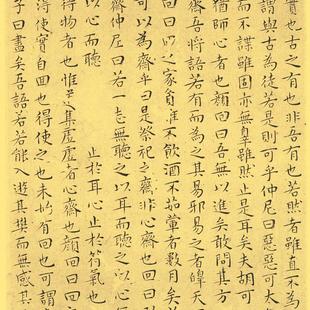 實也古之有也非吾有也若然者雖直不為
謂與古為徒若是則可乎仲尼曰惡惡可大
而不諜雖固亦無辠雖然止是耳矣夫胡可
猶師心者也顏回曰吾無以進矣敢問其方
齋吾將語若有而為之其易邪易之者皞天
回曰回之家貧唯不飲酒不茹葷者數月矣
可以為齋乎曰是祭祀之齋非心齋也回曰
齋仲尼曰若一志無聽之以耳而聽之以心
心而聽 止於耳心止於符氣也
得物者也惟道集虛虛者心齋也顏回曰回
得使實自回也得使之也未始有回也可謂
子曰盡矣吾語若若能入遊其樊而無感其